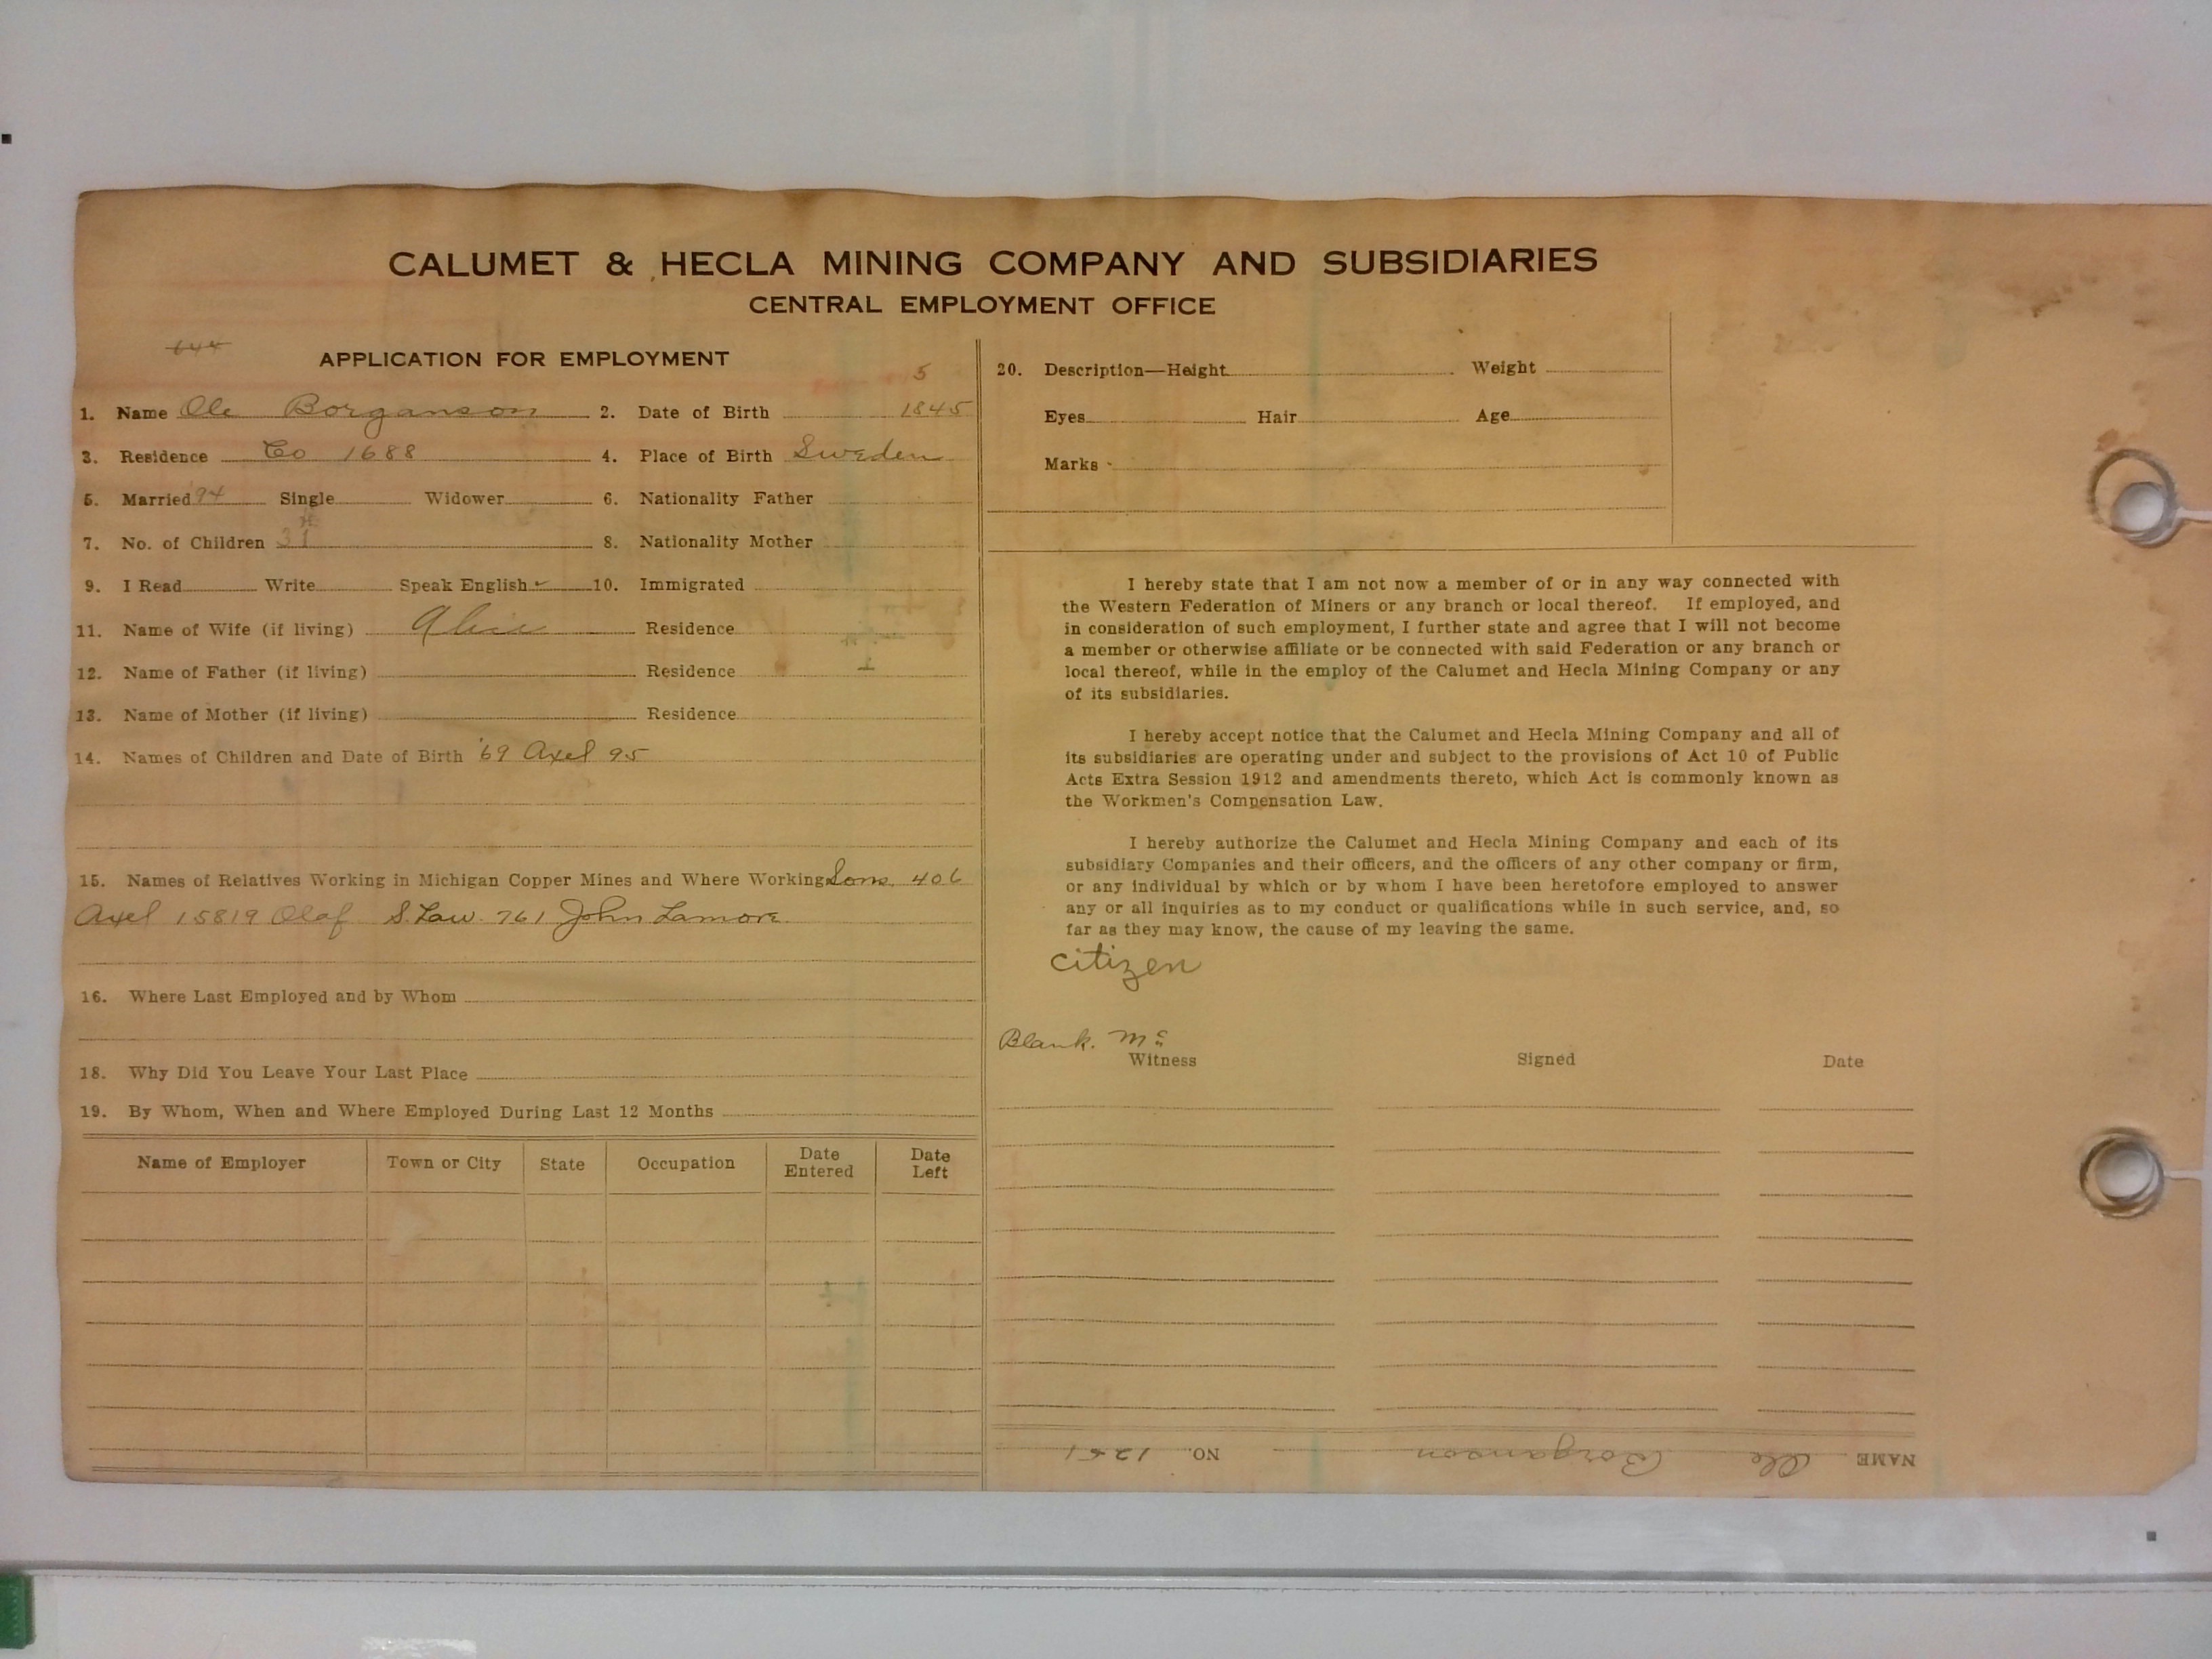 CALUMET & HECLA MINING COMPANY AND SUBSIDIARIES
CENTRAL EMPLOYMENT OFFICE
644
APPLICATION FOR EMPLOYMENT
5
1. Name Ole Borganson 2. Date of Birth 1845
3. Residence Co 1688 4. Place of Birth Sweden
5. Married 94 Single Widower 6. Nationality Father
7. No. of Children 8. Nationality Mother
9. I Read Write Speak English ✓ 10. Immigrated
11. Name of Wife (if living) Residence
12. Name of Father (if living) Residence
13. Name of Mother (if living) Residence
14. Names of Children and Date of Birth '69 Axel 95
15. Names of Relatives Working in Michigan Copper Mines and Where Working Sons 406
Axel 15819 Olaf S. Law. 761 John Lamore
16. Where Last Employed and by Whom
18. Why Did You Leave Your Last Place
19. By Whom, When and Where Employed During Last 12 Months
Name of Employer Town or City State Occupation Date Entered Date Left
20. Description—Height Weight
Eyes Hair Age
Marks
I hereby state that I am not now a member of or in any way connected with
the Western Federation of Miners or any branch or local thereof. If employed, and
in consideration of such employment, I further state and agree that I will not become
a member or otherwise affiliate or be connected with said Federation or any branch or
local thereof, while in the employ of the Calumet and Hecla Mining Company or any
of its subsidiaries.
I hereby accept notice that the Calumet and Hecla Mining Company and all of
its subsidiaries are operating under and subject to the provisions of Act 10 of Public
Acts Extra Session 1912 and amendments thereto, which Act is commonly known as
the Workmen's Compensation Law.
I hereby authorize the Calumet and Hecla Mining Company and each of its
subsidiary Companies and their officers, and the officers of any other company or firm,
or any individual by which or by whom I have been heretofore employed to answer
any or all inquiries as to my conduct or qualifications while in such service, and, so
far as they may know, the cause of my leaving the same.
citizen
Blank. Mc
Witness Signed Date
NAME Ole Borganson NO. 1251